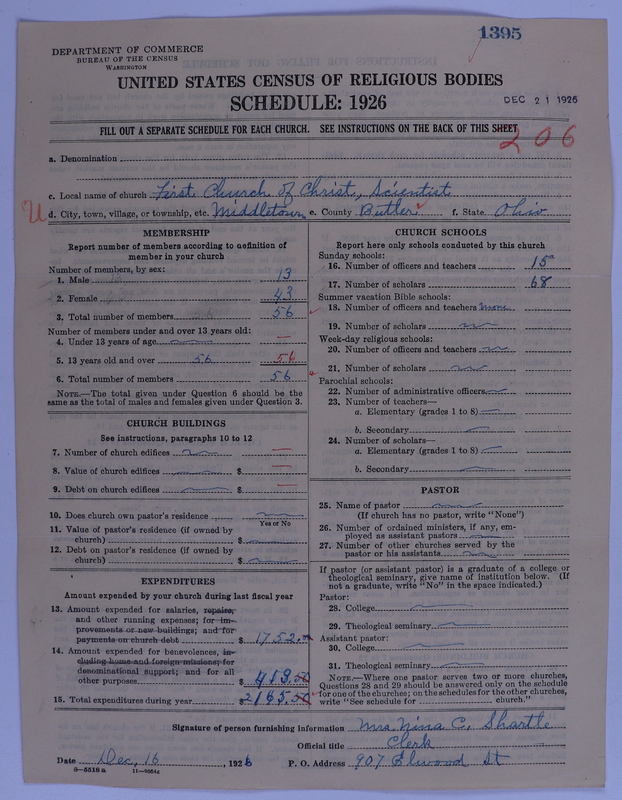 1395
DEPARTMENT OF COMMERCE
BUREAU OF THE CENSUS
WASHINGTON
UNITED STATES CENSUS OF RELIGIOUS BODIES
SCHEDULE: 1926
DEC 21 1926
FILL OUT A SEPARATE SCHEDULE FOR EACH CHURCH. SEE INSTRUCTIONS ON THE BACK OF THIS SHEET
206
a. Denomination
c. Local name of church First Church of Christ, Scientist
d. City, town, village, or township, etc. Middletown e. County Butler f. State Ohio
MEMBERSHIP
Report number of members according to definition of
member in your church
Number of members, by sex:
1. Male 13
2. Female 43
3. Total number of members 56
Number of members under and over 13 years old:
4. Under 13 years of age
5. 13 years old and over 56 56
6. Total number of members 56
NOTE.—The total given under Question 6 should be
same as the total of males and females given under Question 3.
CHURCH BUILDINGS
See instructions, paragraphs 10 to 12
7. Number of church edifices
8. Value of church edifices $
9. Debt on church edifices $
10. Does church own pastor's residence
Yes or No
11. Value of pastor's residence (if owned by
church) $
12. Debt on pastor's residence (if owned by
church) $
EXPENDITURES
Amount expended by your church during last fiscal year
13. Amount expended for salaries, repairs,
and other running expenses; for im-
provements or new buildings; and for
payments on church debt $ 1752.00
14. Amount expended for benevolences, in-
cluding home and foreign missions; for
denominational support; and for all
other purposes $ 413.00
15. Total expenditures during year $ 2165.00
CHURCH SCHOOLS
Report here only schools conducted by this church
Sunday schools:
16. Number of officers and teachers 15
17. Number of scholars 68
Summer vacation Bible schools:
18. Number of officers and teachers none
19. Number of scholars
Week-day religious schools:
20. Number of officers and teachers
21. Number of scholars
Parochial schools:
22. Number of administrative officers
23. Number of teachers—
a. Elementary (grades 1 to 8)
b. Secondary
24. Number of scholars—
a. Elementary (grades 1 to 8)
b. Secondary
PASTOR
25. Name of pastor
(If church has no pastor, write "None")
26. Number of ordained ministers, if any, em-
ployed as assistant pastors
27. Number of other churches served by the
pastor or his assistants
If pastor (or assistant pastor) is a graduate of a college or
theological seminary, give name of institution below. (If
not a graduate, write "No" in the space indicated.)
Pastor:
28. College
29. Theological seminary
Assistant pastor:
30. College
31. Theological seminary
NOTE.—Where one pastor serves two or more churches,
Questions 28 and 29 should be answered only on the schedule
for one of the churches; on the schedules for the other churches,
write "See schedule for church."
Signature of person furnishing information Mrs. Nina C. Shartle
Official title Clerk
Date Dec, 16, 1926 P. O. Address 907 Elwood St
8—5518 a